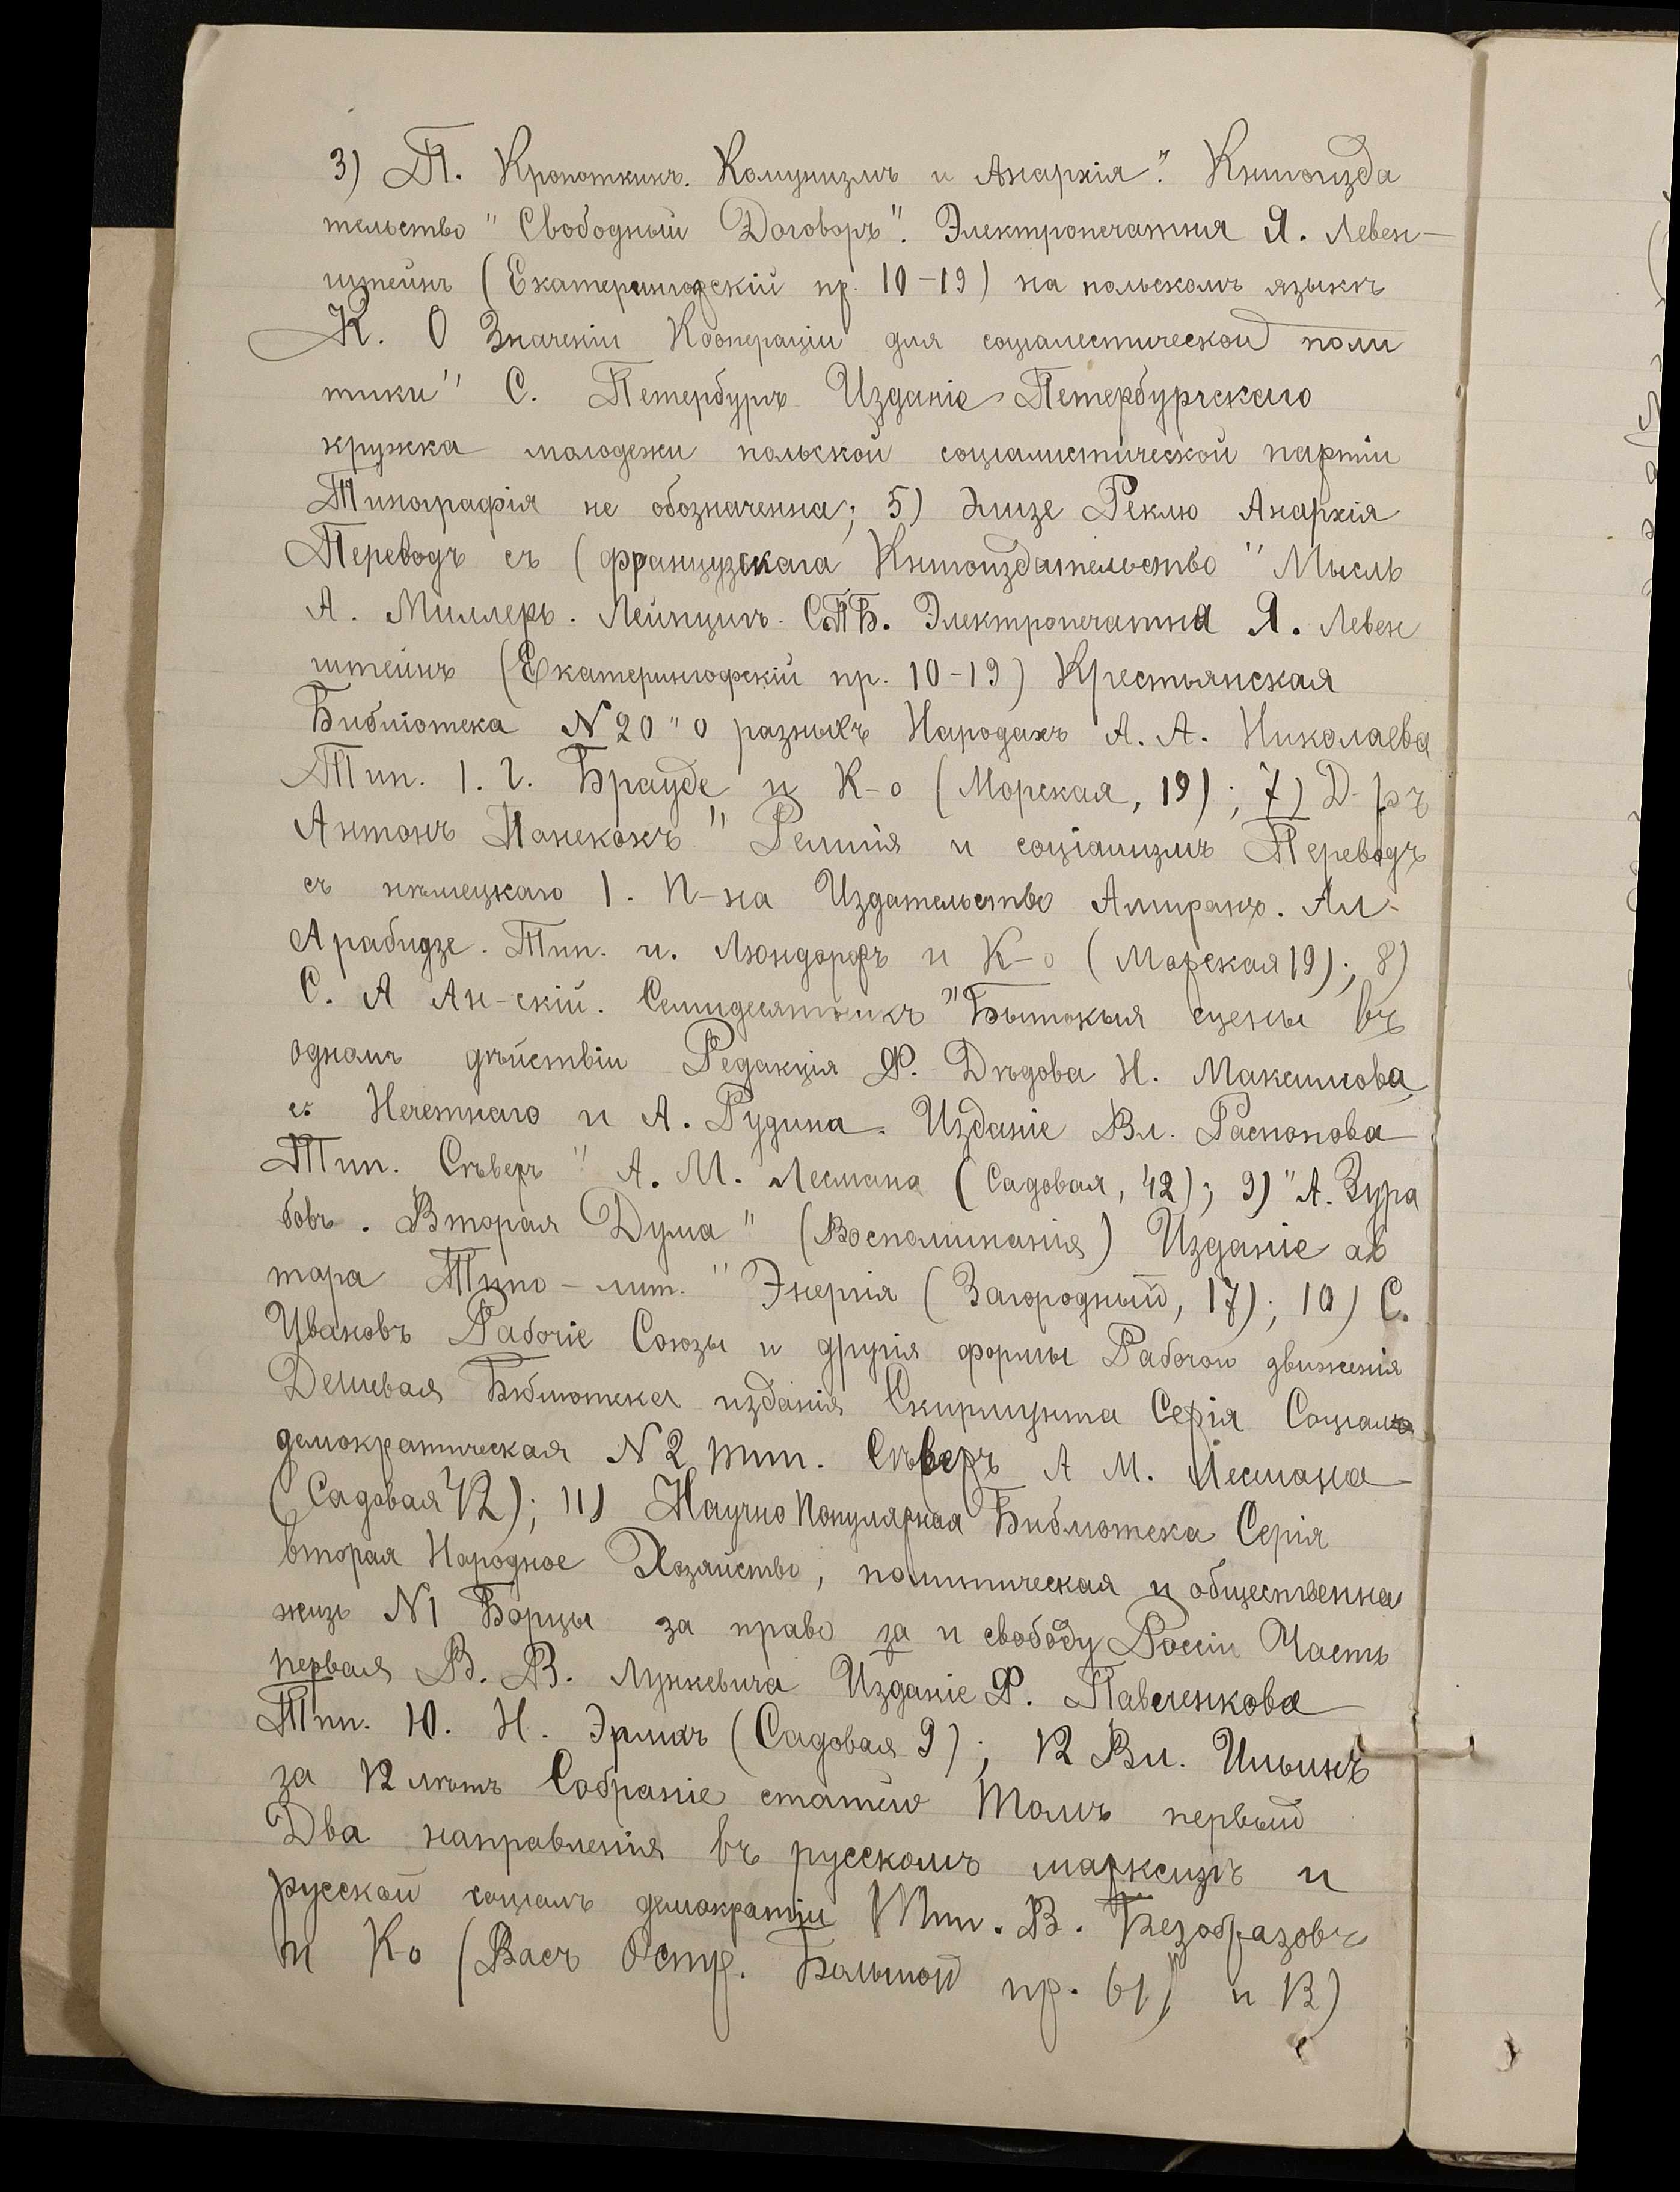 3) П. Кропоткинъ. Комунизмъ и Анархія". Книгоизда
тельство "Свободный Договоръ". Электропечатня Я. Левен-
штейнъ (Екатерингофскій пр. 10-19) на польскомъ языкѣ
К. О Значеніи Коопераціи для социалестической поли
тики" С. Петербургъ Изданіе Петербургскаго
кружка молодежи польской социалистической партіи
Типографія не обозначенна; 5) Элизе Реклю Анархія
Переводъ съ (французскаго Книгоиздательство "Мысль
А. Миллеръ. Лейпцигъ. СПБ. Электропечатня Я. Левен
штейнъ (Екатерингофскій пр. 10-19) Крестьянская
Библіотека N 20 "О разныхъ Народахъ А. А. Николаева
Тип. І. Г. Брауде и К-о (Морская, 19); 7) Д-ръ
Антонъ Панекокъ" Религія и соціализмъ Переводъ
съ нѣмецкаго І. П-на Издательство Амиранъ. Ал-
Арабидзе. Тип. и. Люндорфъ и К-о (Морская 19); 8)
С. А Ан-скій. Семидесятникъ "Бытокыя сцены въ
одномъ дѣйствіи Редакція Ф. Дѣдова Н. Максимова,
е. Нечетнаго и А. Рудина. Изданіе Вл. Распопова
Тип. Сѣверъ" А. М. Лесмана (Садовая, 42); 9) "А. Зура
бовъ. Вторая Дума" (Воспоминанія) Изданіе ав
тора Типо-лит. "Энергія (Загородный, 17); 10) С.
Ивановъ Рабочіе Союзы и другія формы Рабочои движенія
Дешевая Бібліотека изданія Скирмунта Серія Социалъ
демократическая N 2 тип. Сѣверъ А М. Лесмана
(Садовая 42); 11) Научно Популярная Библіотека Серія
вторая Народное Хозяйство, политическая и общественна
жизь N 1 Борцы за право за и свободу Россіи Часть
первая В. В. Лункевича Изданіе Ф. Павленкова
Тип. Ю. Н. Эрлихъ (Садовая 9); 12 Вл. Ильинъ
за 12 лѣтъ Собраніе статей Томъ первый
Два направленія въ русскомъ марксизмѣ и
русской социалъ демократіи Тип. В. Безобразовъ
и Ко (Вас. Остр. Большой пр. 61) и 13)